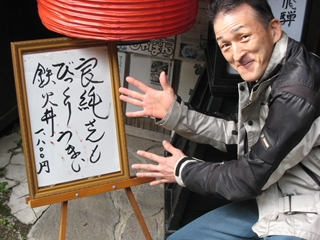 良純さんも
びっくりうまい
鉄火丼 一、八〇〇円
飛騨